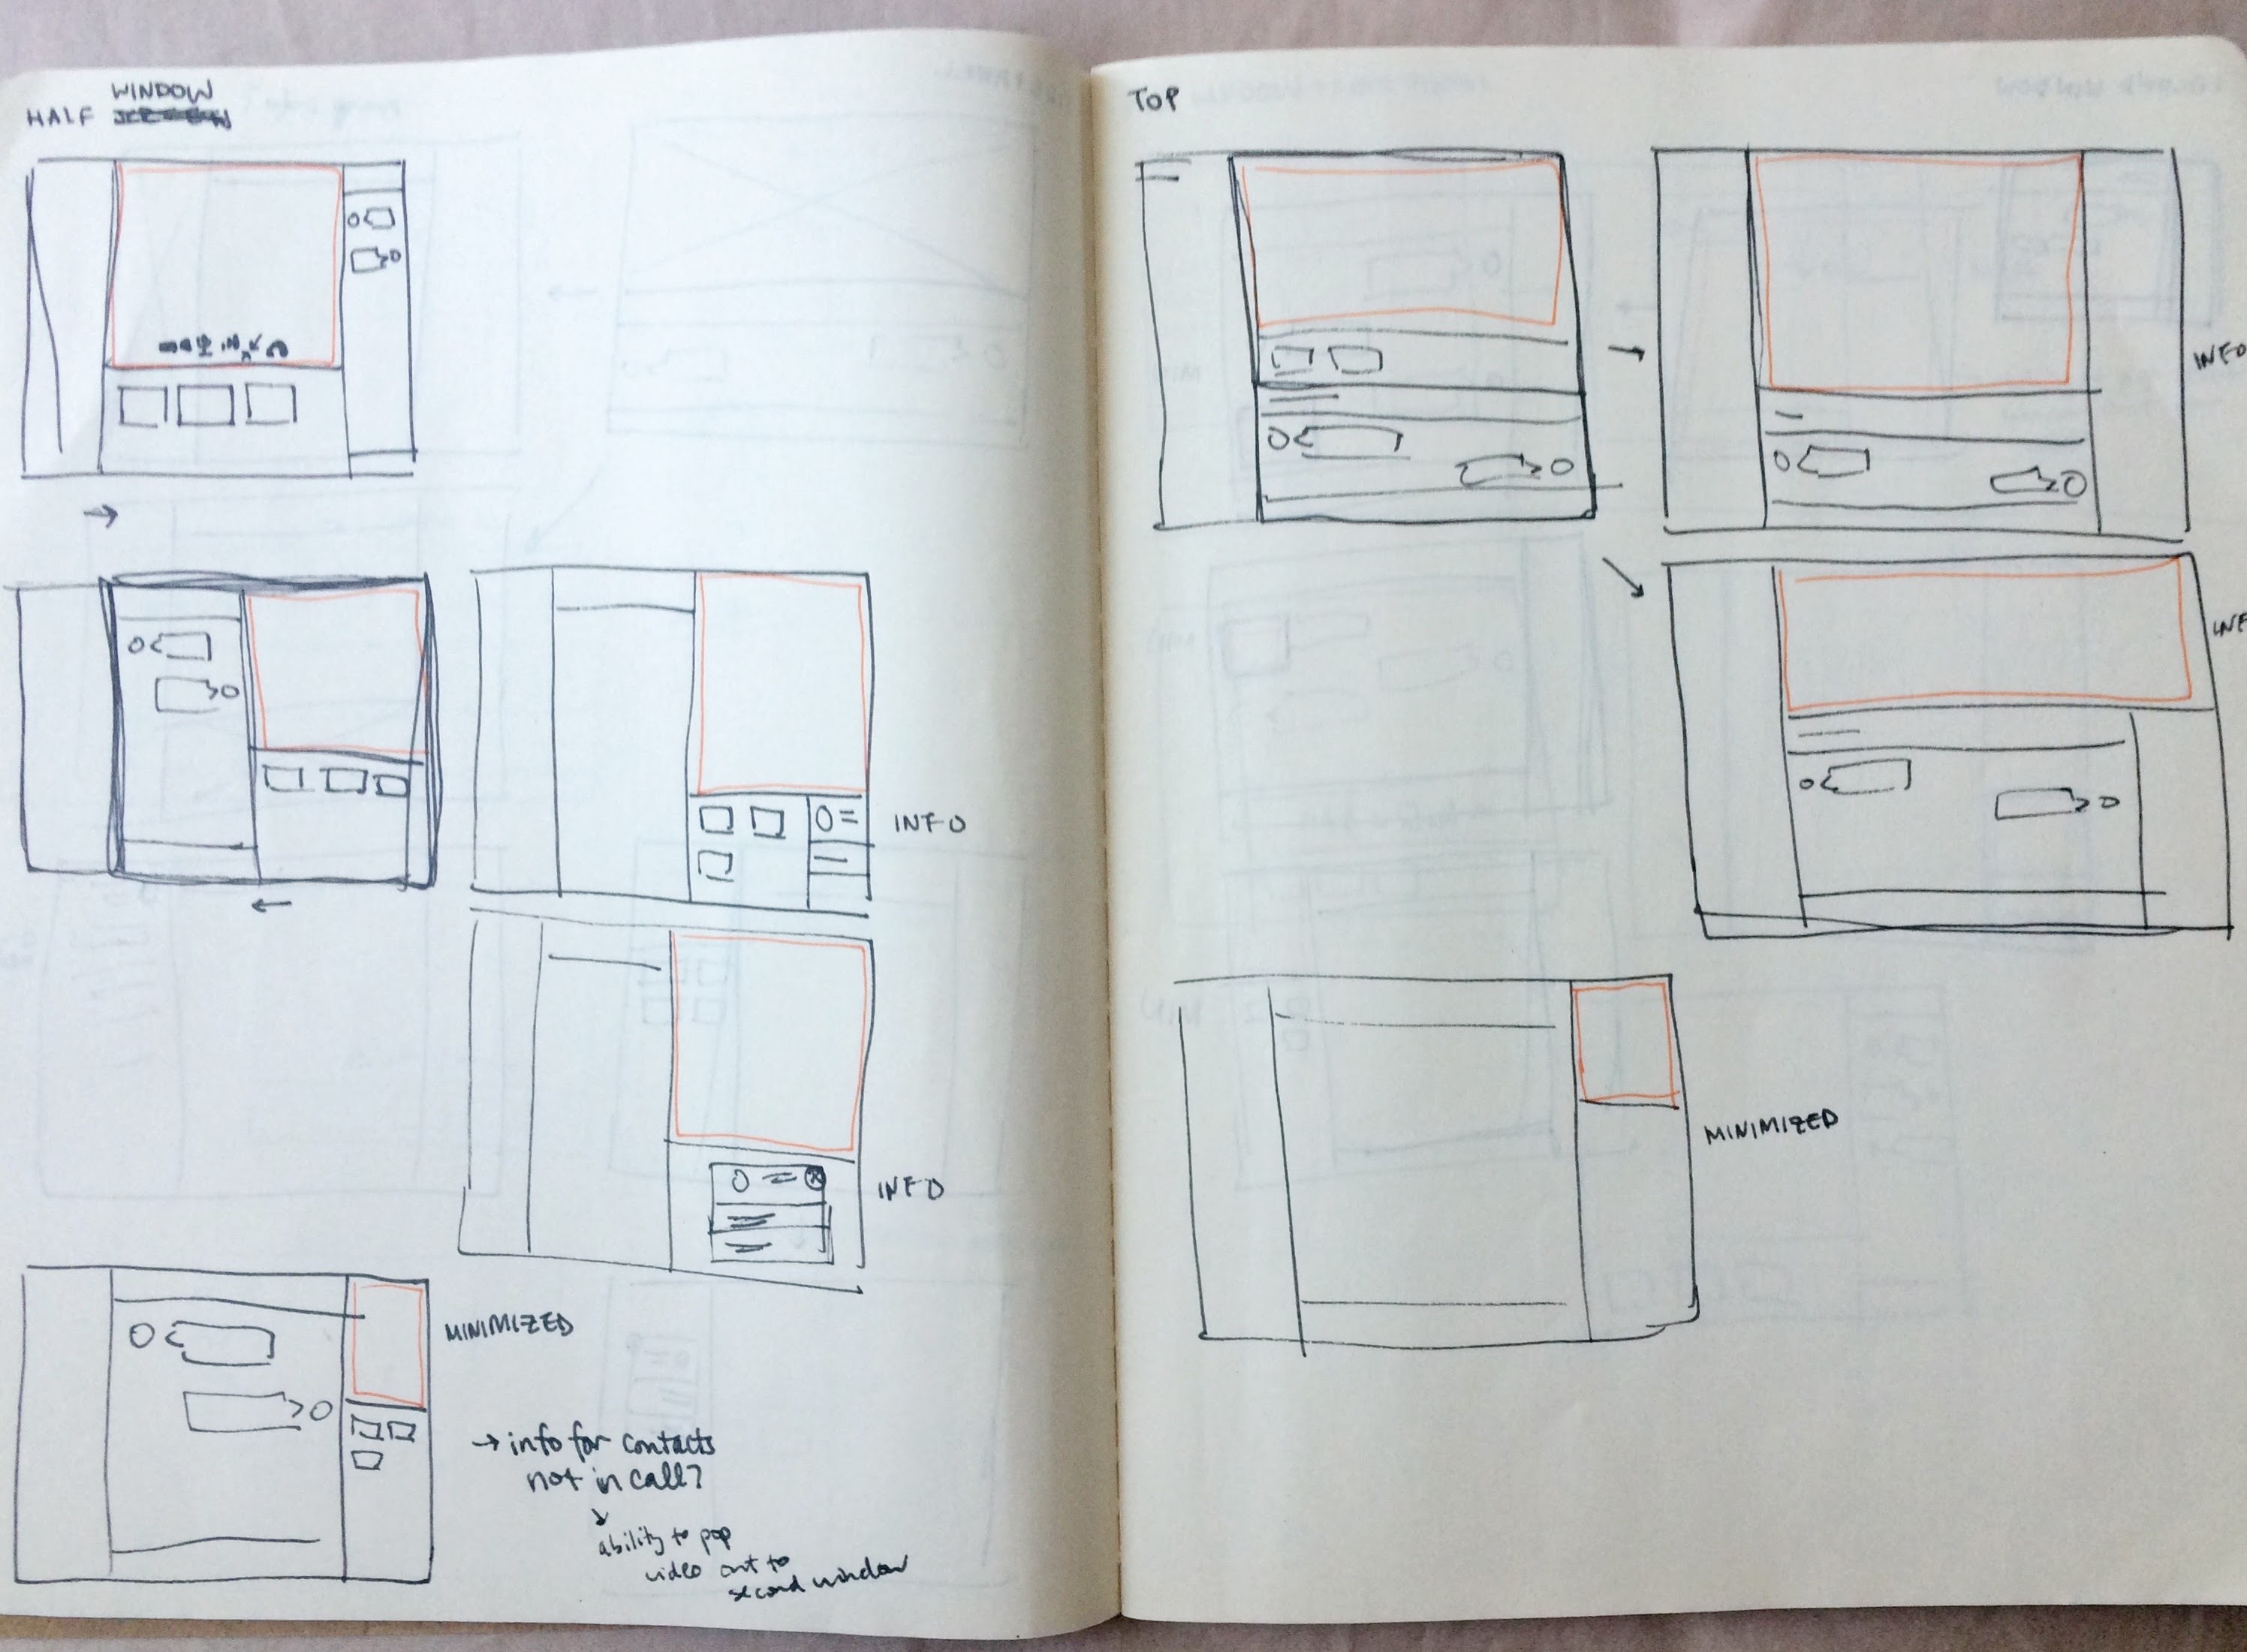 WINDOW
HALF
INFO
INFO
MINIMIZED
→ info for contacts
not in call?
ability to pop
video out to
second window
TOP
INFO
INF
MINIMIZED